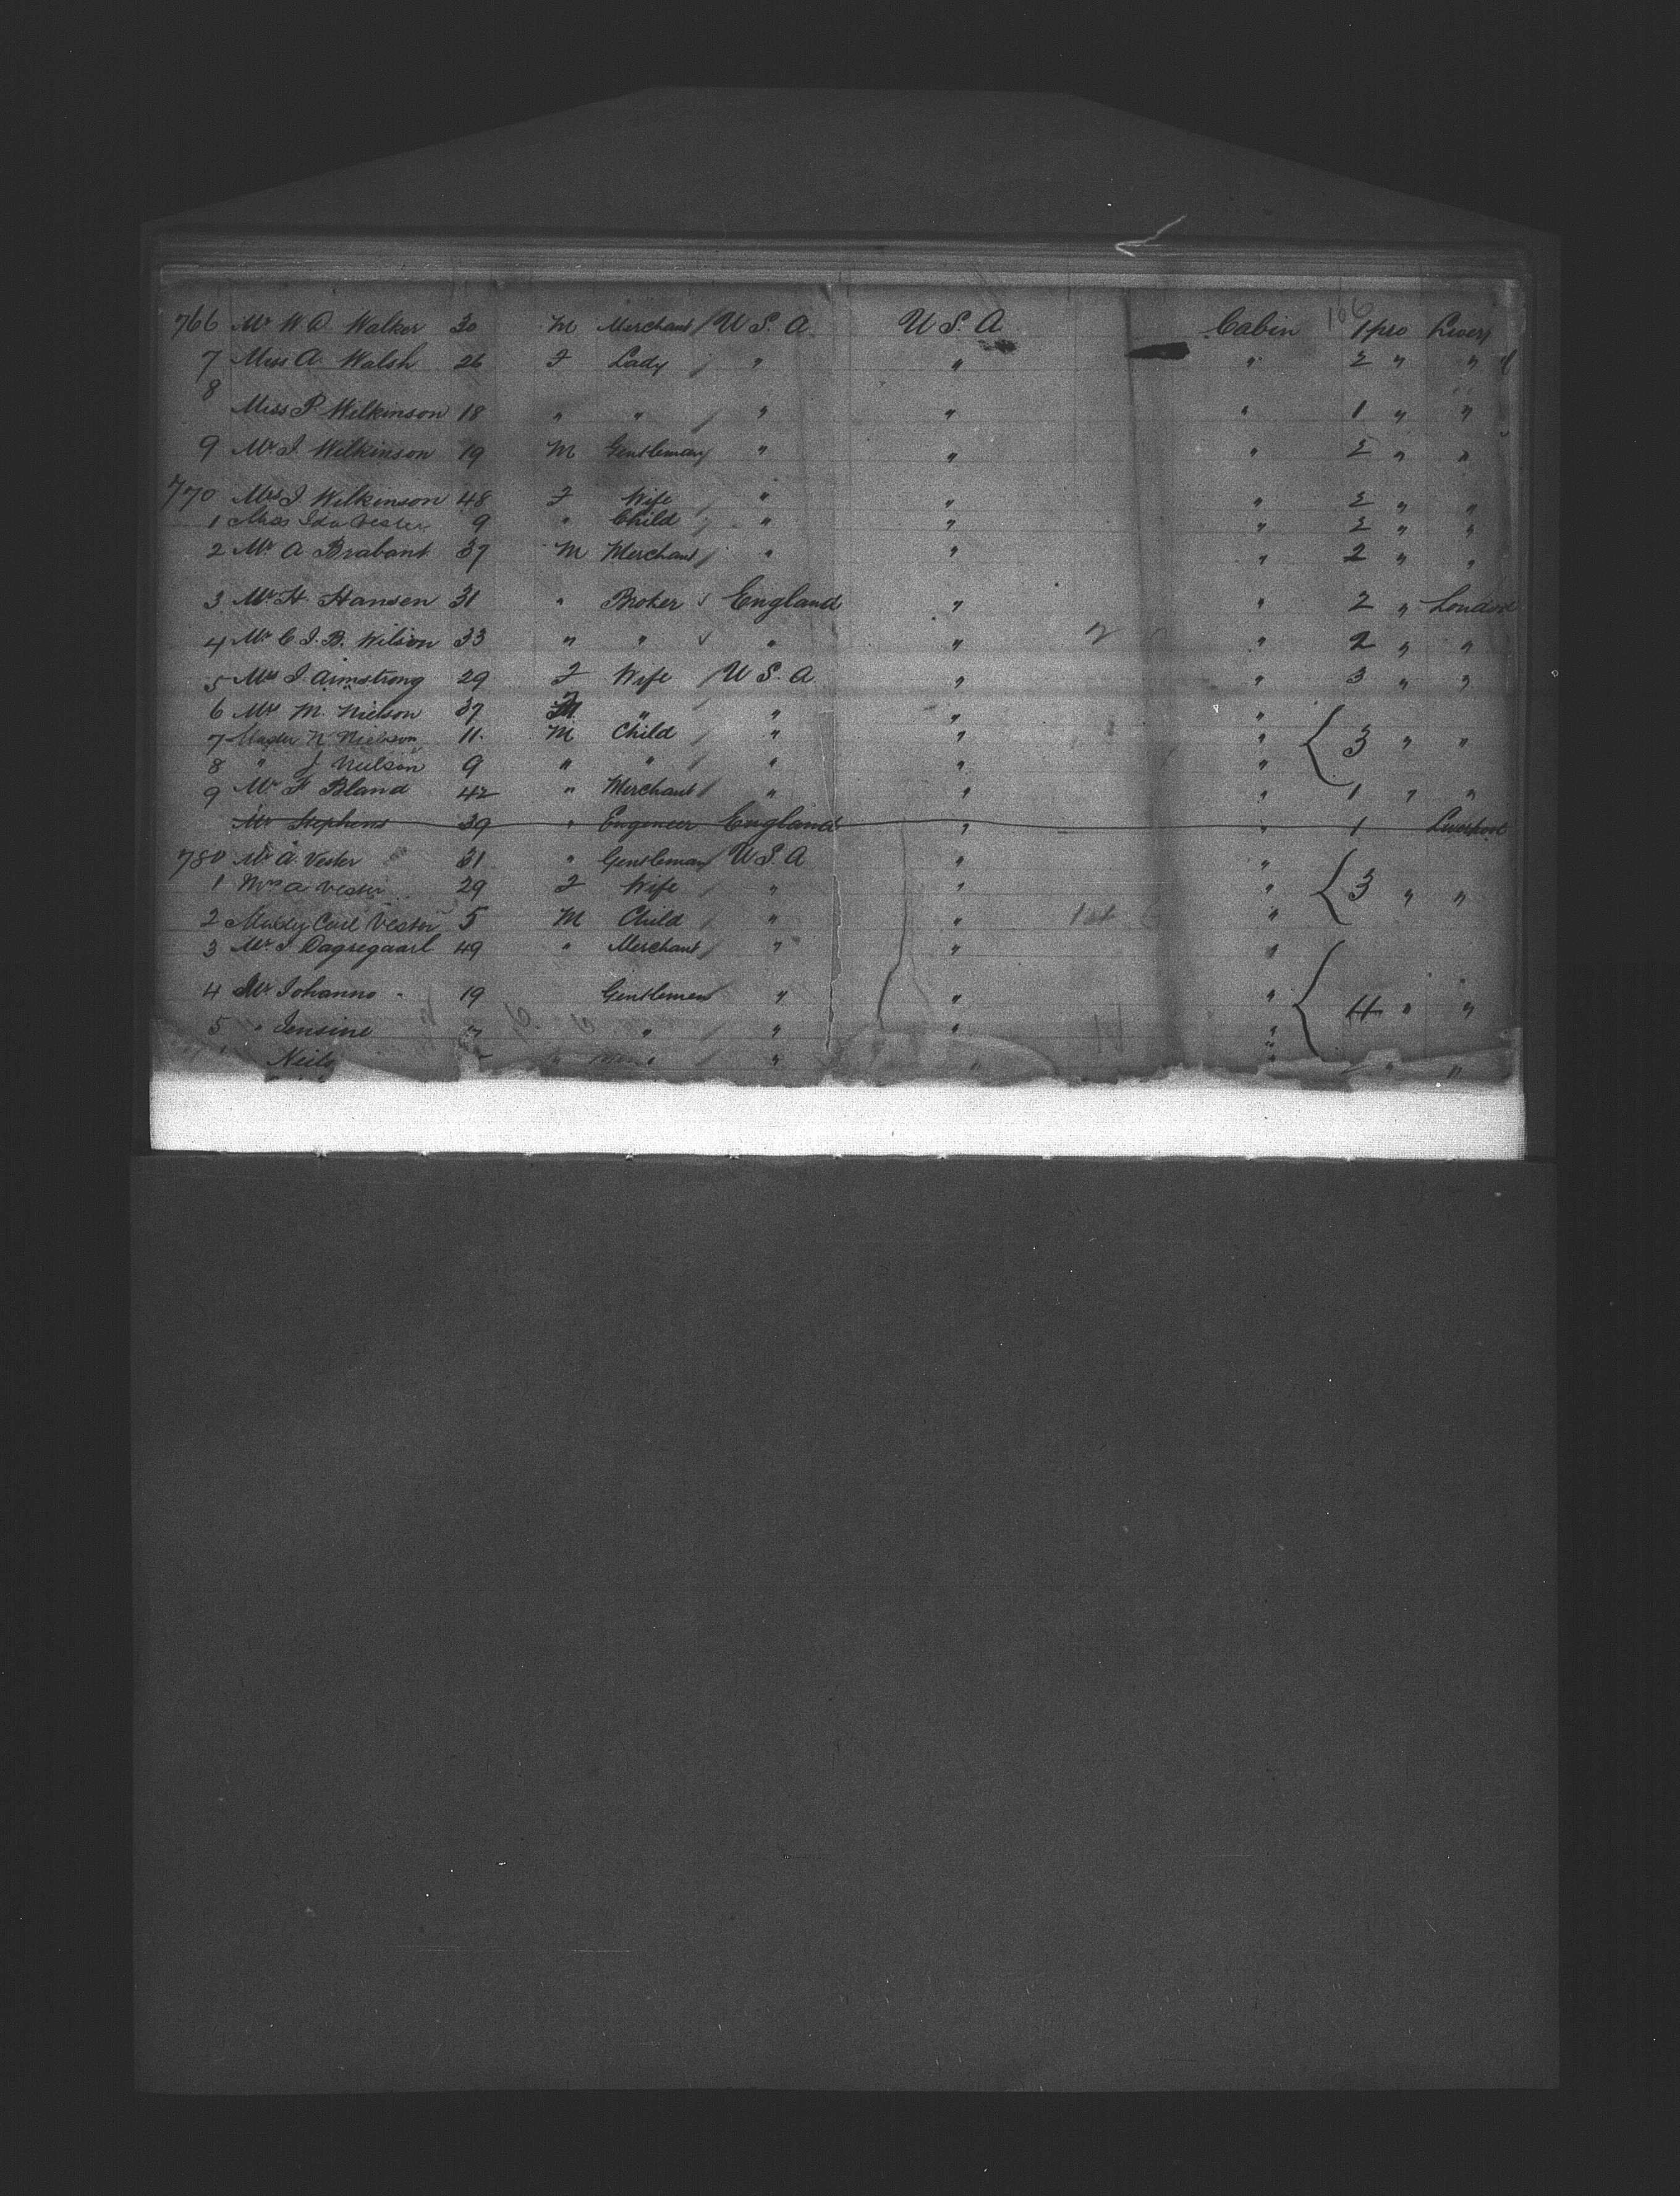 106
766 Mr W. D. Walker 30 M Merchant / U S. A. U S. A Cabin 1 pro Liverp
7 Miss A. Walsh 26 F Lady / " " " 2 " "
8 Miss P. Wilkinson 18 " " / " " " 1 " "
9 Mr J. Wilkinson 19 M Gentleman / " " " 2 " "
770 Mrs J Wilkinson 48 F Wife / " " " 2 " "
1 Miss Ida Vester 9 " Child / " " " 2 " "
2 Mr. A Brabant 37 M Merchant / " " " 2 " "
3 Mr. H. Hansen 31 " Broker √ England " " 2 " London
4 Mr C. J. B. Wilson 33 " " √ " " " 2 " "
5 Mrs J Armstrong 29 F Wife / U S. A " " 3 " "
6 Mrs M. Nielson 37 F " / " " "
7 Master N Nielson 11. M Child / " " " 3 " "
8 " J Neilson 9 " " / " " "
9 Mr F Bland 42 " Merchant / " " " 1 " "
Mr Stephens 39 " Engineer England " " 1 Liverpool
780 Mr A. Vester 31 " Gentleman / U S. A " "
1 Mrs A Vester 29 F Wife / " " " 3 " "
2 Carl Vester 5 M Child / " " "
3 Mr. J. 49 " Merchant / " " "
4 Mr Johanno 19 Gentleman " " " 4 " "
5 " Jensine " / " " "
Neils / " " " "